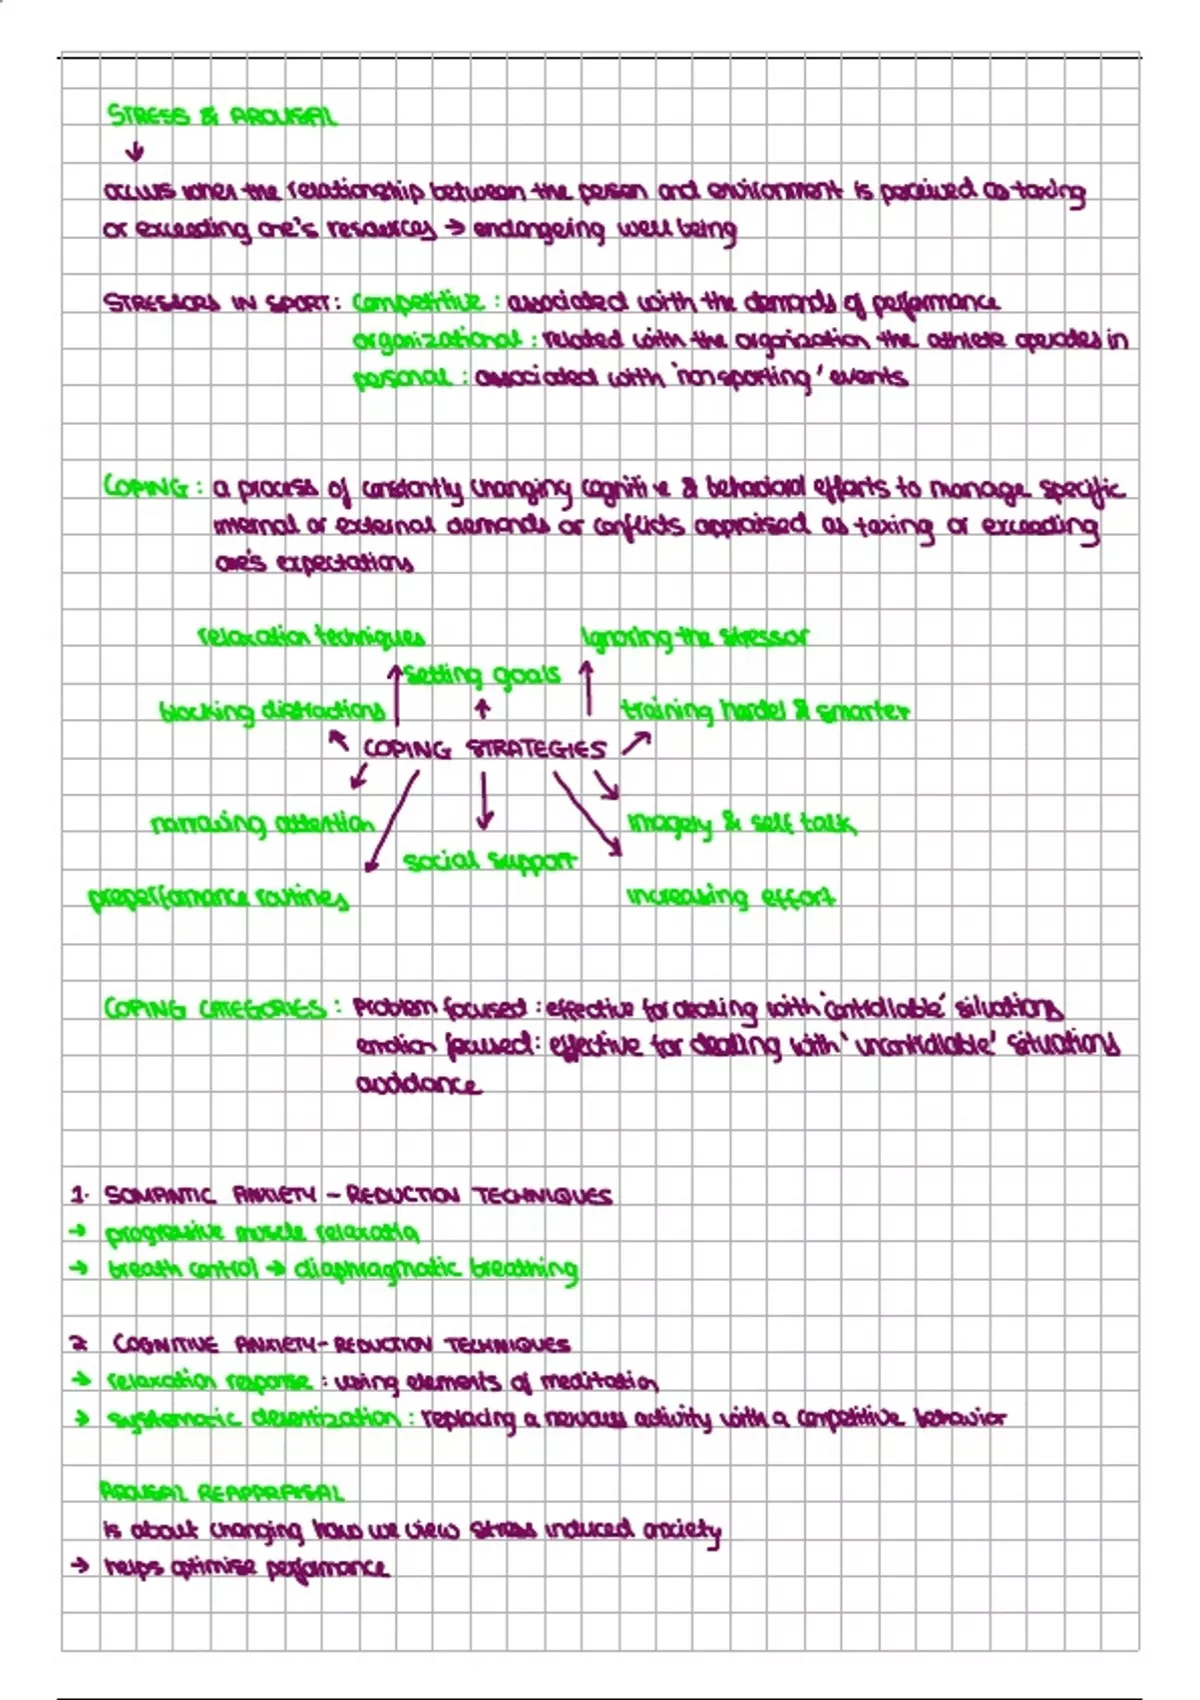 STRESS & AROUSAL
occurs when the relationship between the person and environment is perceived as taxing
or exceeding one's resources → endangering well being
STRESSORS IN SPORT: competitive : associated with the demands of performance
organizational : related with the organization the athlete operates in
personal : associated with 'non sporting' events
COPING : a process of constantly changing cognitive & behavioral efforts to manage specific
internal or external demands or conflicts appraised as taxing or exceeding
one's expectations
relaxation techniques ignoring the stressor
setting goals
blocking distractions training harder & smarter
COPING STRATEGIES
narrowing attention imagery & self talk
social support
preperformance routines increasing effort
COPING CATEGORIES : Problem focused : effective for dealing with 'controllable' situations
emotion focused : effective for dealing with 'uncontrollable' situations
avoidance
1. SOMANTIC ANXIETY - REDUCTION TECHNIQUES
→ progressive muscle relaxation
→ breath control → diaphragmatic breathing
2 COGNITIVE ANXIETY - REDUCTION TECHNIQUES
→ relaxation response : using elements of meditation
→ systematic desentization : replacing a nervous activity with a competitive behavior
AROUSAL REAPPRAISAL
is about changing how we view stress induced anxiety
→ helps optimise performance